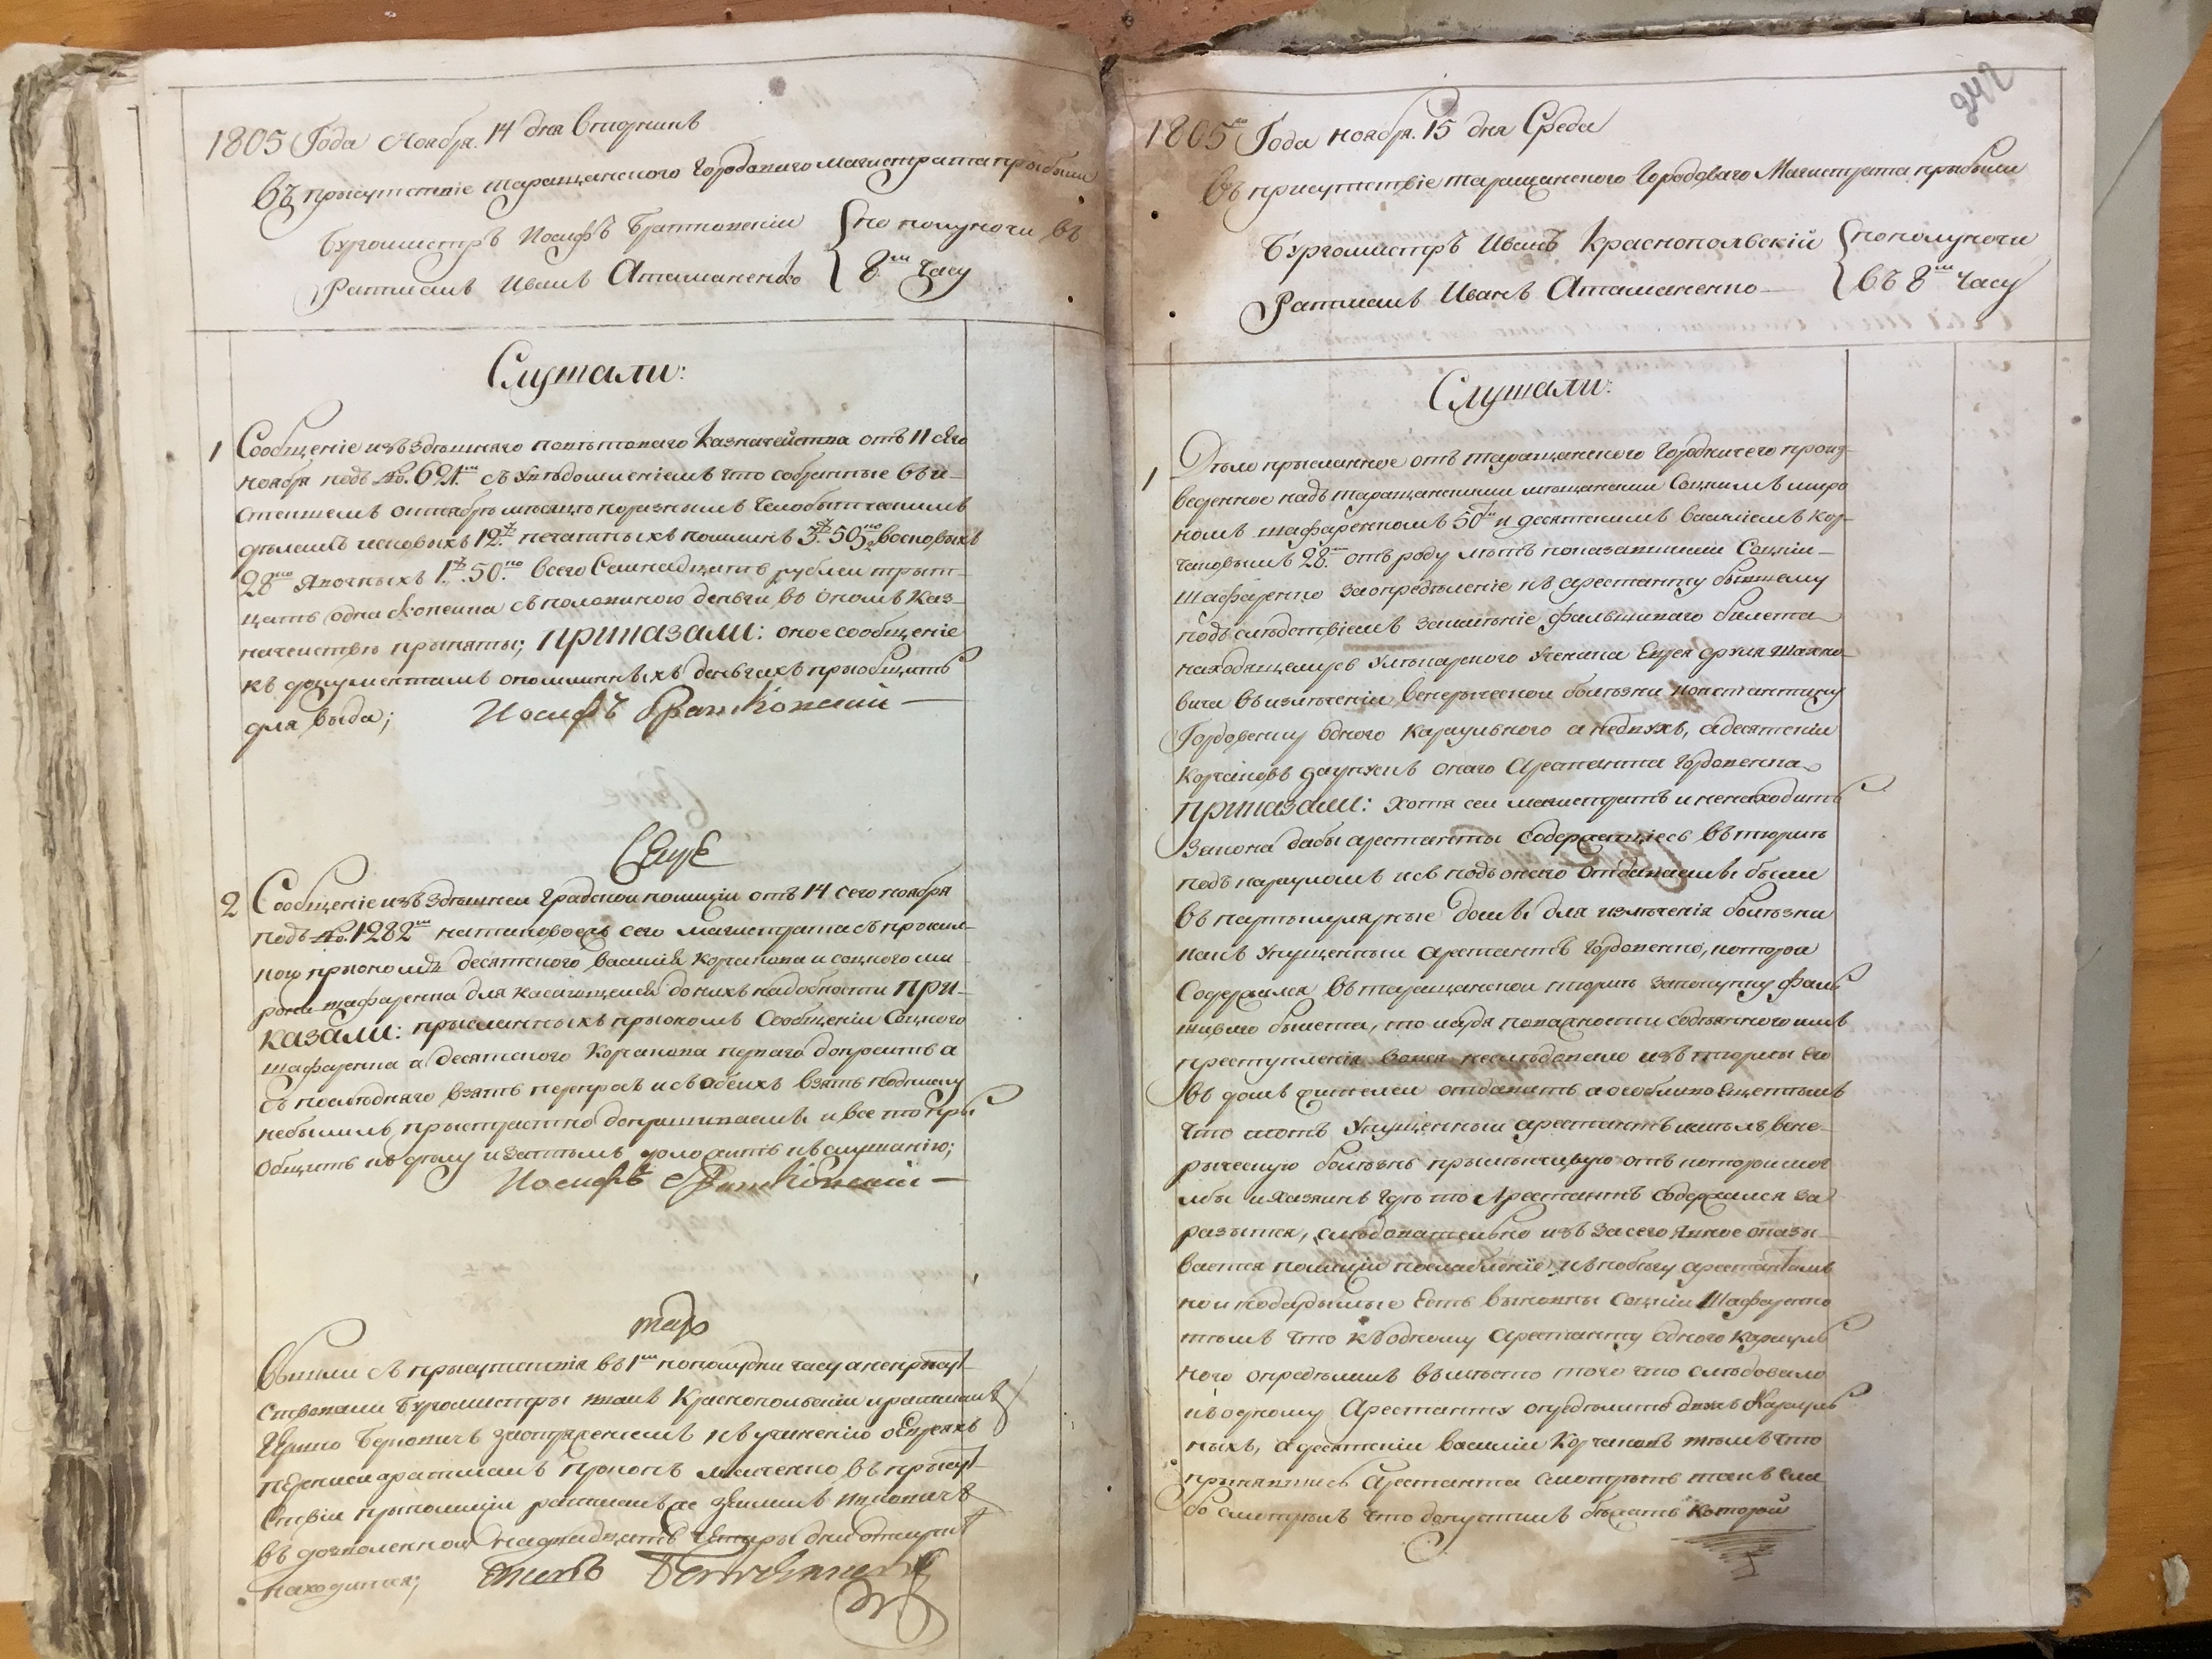 1805 Года Ноября. 14 дня Вторникъ
Въ присутствіе таращанского Городоваго Магистрата прыбыли
Бургомистръ Иосифъ Братковскій по полуночи въ
Ратманъ Иванъ Атаманенко 8мъ часу
Слушали:
1 Сообщеніе изъ здешняго поветоваго казначейства отъ 11 сего
ноября подъ No. 621мъ съ уведомленіемъ что собранные въ и-
стекшемъ октябре месяце поразнымъ челобитческимъ
деламъ исковыхъ 12 р. печатныхъ пошлинъ 3 р. 50 восковыхъ
28 ко явочныхъ 1 р. 50 ко всего Семнадцать рублей трыт-
цать одна копейка съ половиною деньги въ ономъ каз-
начействе прыняты; приказали: оное сообщеніе
къ документамъ опошлинныхъ деньгахъ прыобщить
для выда; Иосифъ Братковский
Еще
2 Сообщеніе изъ здешней Градской полиціи отъ 14 сего ноября
подъ No. 1282мъ сего Магистрата съ
прыономъ десятского василія Корчакова и соцкого ми
рона шафаренка для касающейся до нихъ надобности при-
казали: прысланныхъ прыономъ Сообщеніи Соцкого
шафаренка а десятского Корчакова перваго допросить а
съ последняго взять и съ обеихъ взять подписку
небылилъ прыстрастно допрашиваемы и все то пры
общить къ делу и затемъ доложить къ слушанію;
Иосифъ Братковский
таръ
Вышли съ прысутствія въ 1мъ пополудни часу а непрысут-
ствовали Бургомистры Иванъ Краснопольскій и ратманъ
Гершко Берковичъ къ учиненію оЕвреяхъ
переписи а ратманъ Прокопъ въ прысут-
ствіи прыполиціи ратманъ же
въ дозволенном надвадцать Четыри дни отпуске
находится;
242
1805го Года ноября. 15 дня Среда
Въ присутствіе таращанского Городоваго Магистрата прыбыли
Бургомистръ Иванъ Краснопольскій пополуночи
Ратманъ Иванъ Атаманенко въ 8мъ часу
Слушали:
1 Дело прысланное отъ таращанского Городничего произ-
веденное надъ таращанскими мещанами Соцкимъ миро
номъ шафаренкомъ 50ти и десятскимъ василіемъ Кор-
чаковымъ 28ми отъ роду летъ показавшими Соцкій
Шафаренко заопределеніе къ арестанту бывшему
подъ следствіемъ фальшиваго билета
находящемусь Улекарского Ученика Еврея Шахно-
вича въ излеченіи венерыческой болезни константину
Гордовенку одного караульного а недвухъ, а десятскій
Корчаковъ заупускъ онаго Арестанта Гордовенка
приказали: хотя сей магистратъ и ненаходитъ
закона дабы арестанты содержащіесь въ тюрме
подъ карауломъ исъ подъ онаго отдаваемы были
въ партыкулярные домы для излеченія болезни
какъ упущенный арестантъ Гордовенко, которой
Содержался въ таращанской тюрме запокупку фаль
шиваго билета, то
преступленія вовся неследовало изъ тюрмы его
въ домъ жителей отдавать а особливо
что етотъ Упущенный арестантъ имелъ вене-
рыческую болезнь прылипчивую отъ которой мог
лбы и хазяинъ где то Арестантъ содержался за
разытся, следовательно изъ засего явное оказы
вается полиціи послабленіе къ побегу арестантамъ
но и Есть виновны Соцкій Шафаренко
темъ что къ одному арестанту одного карауль
ного определилъ въ место того что следовало
къ одному Арестанту определить двухъ Караулъ
ныхъ, а десятскій василій Корчаковъ темъ что
прынявшись арестанта смотреть такъ сла
бо смотрелъ что допустилъ бежать которой